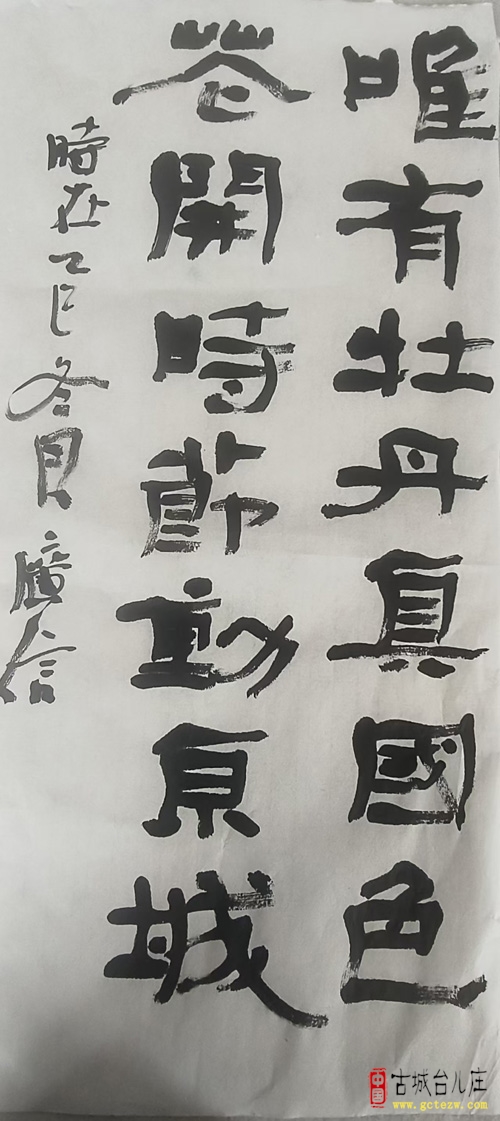 唯有牡丹真國色
花開時節動京城
時在乙巳冬月 廣信
中国
古城台儿庄
www.gctezw.com